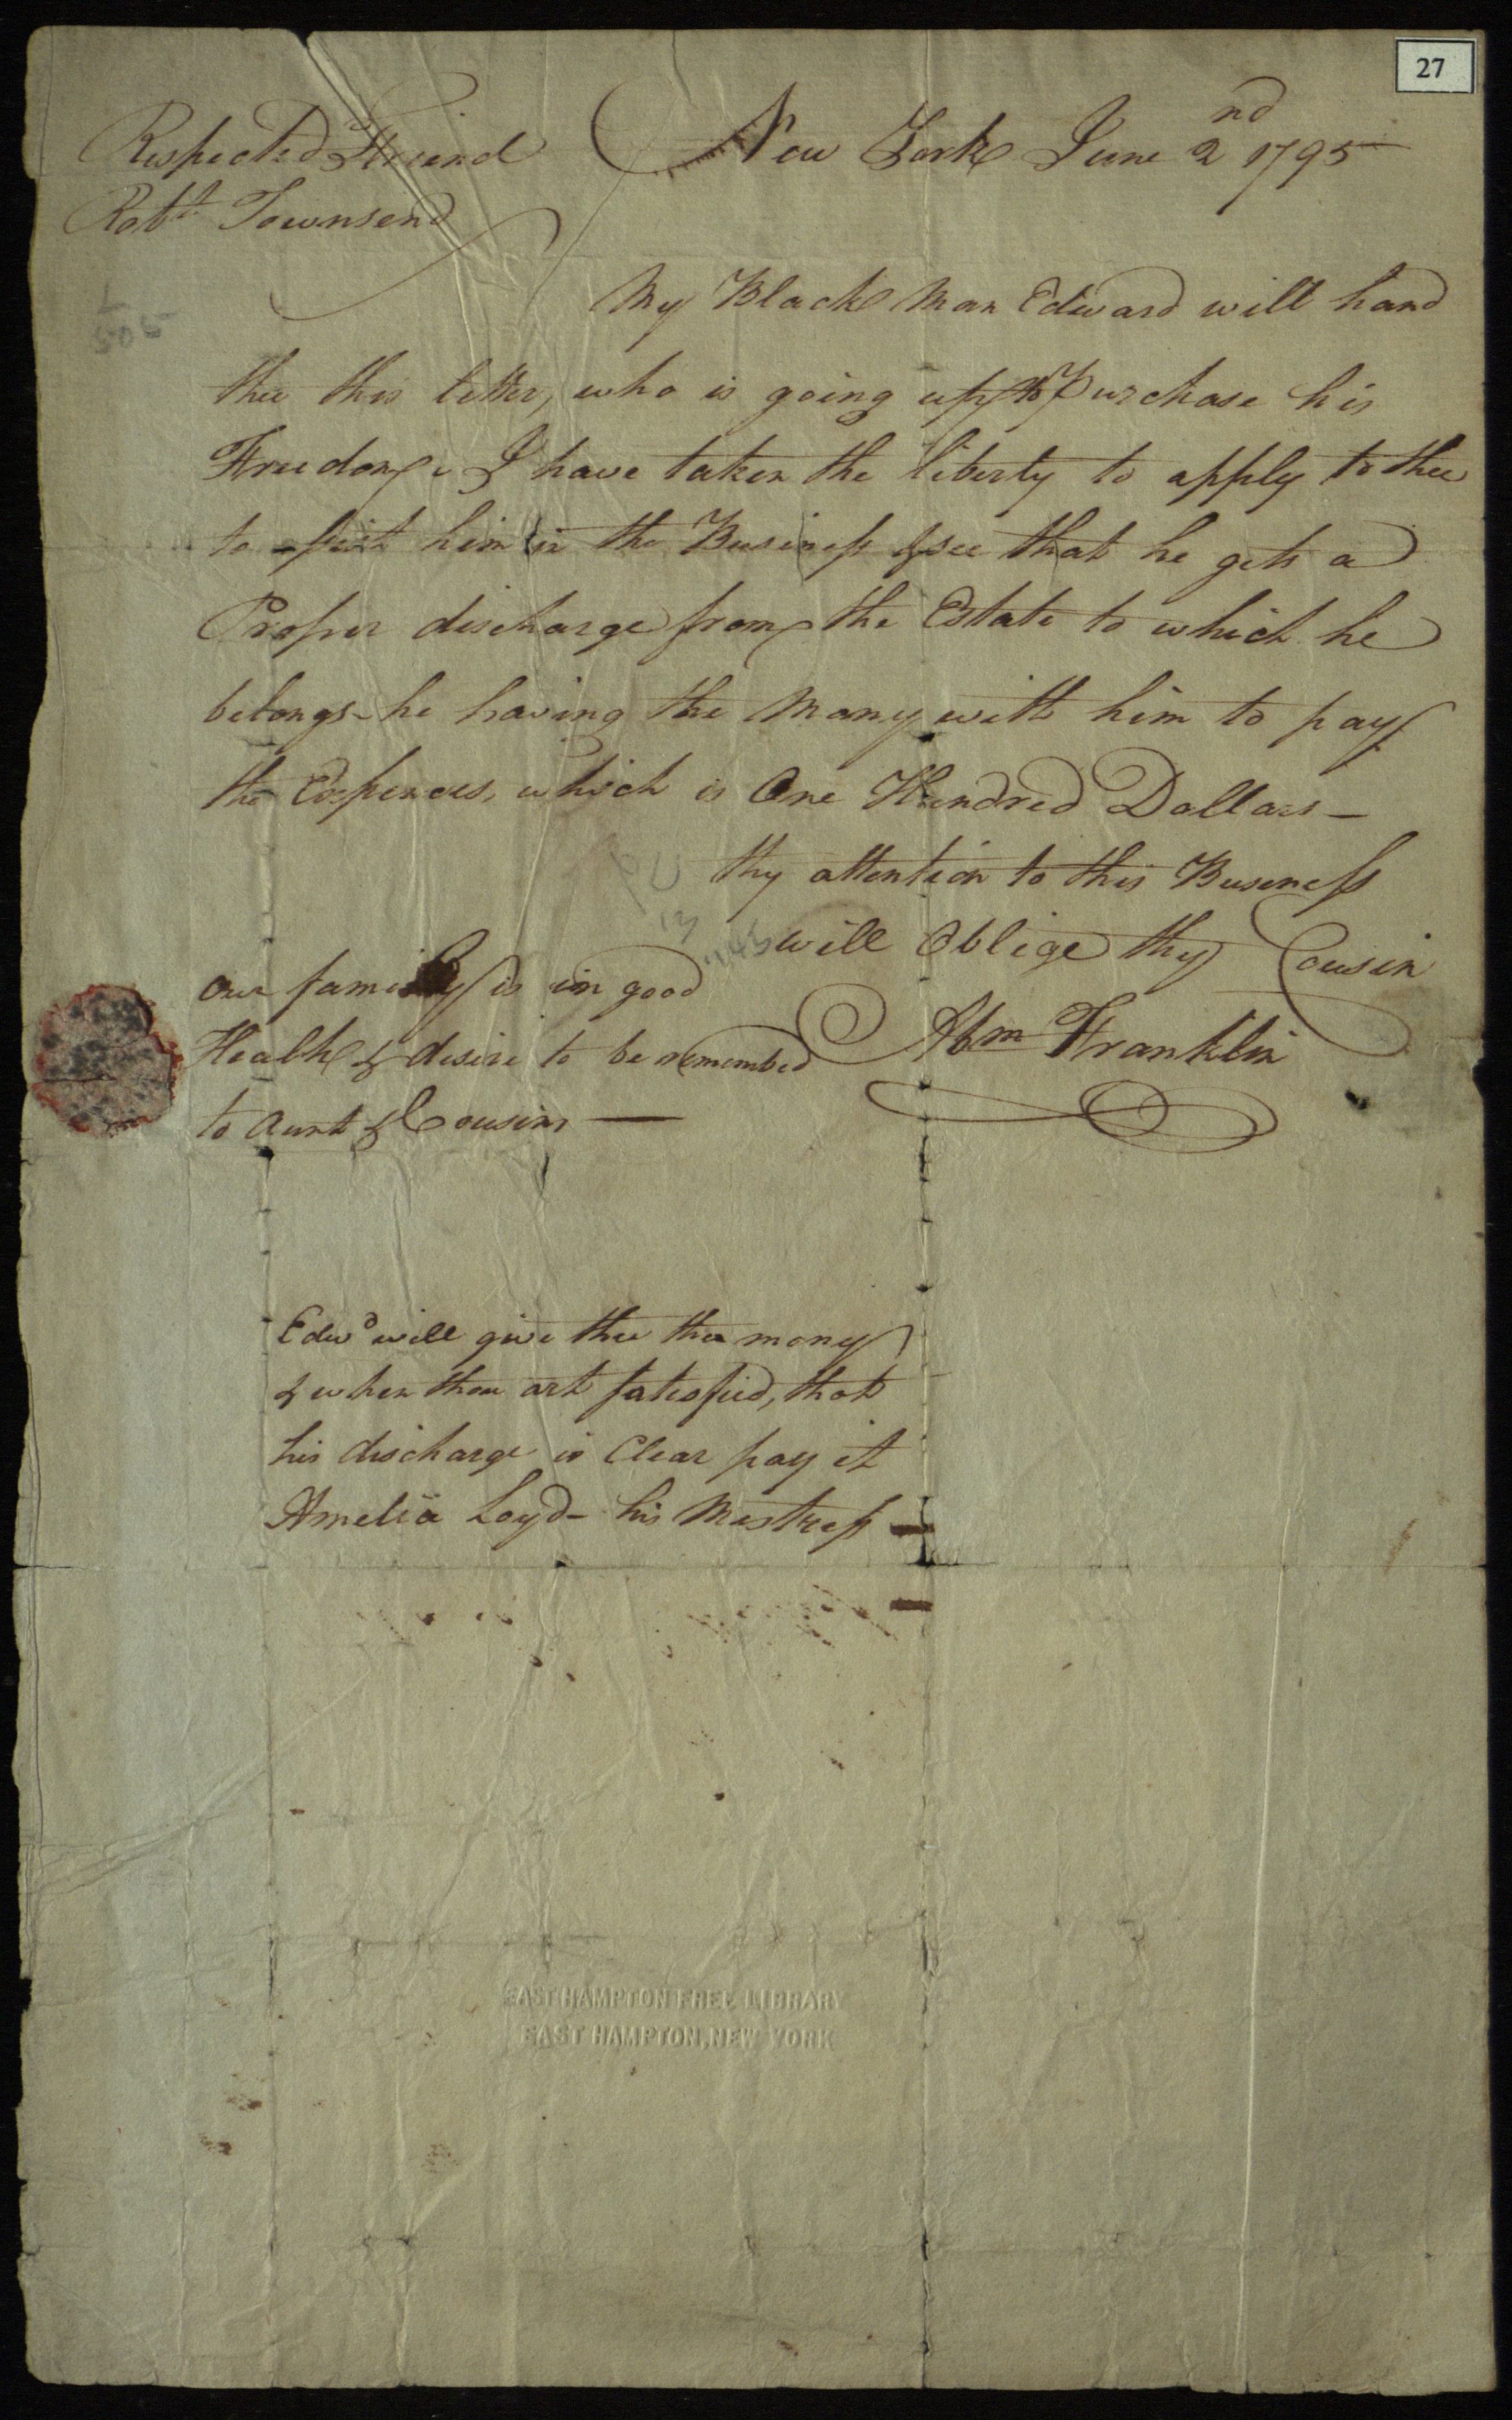 27
Respected Friend New York June 2nd 1795
Robt Townsend
My Black Man Edward will hand
thee this letter, who is going up to Purchase his
Freedom, I have taken the liberty to apply to thee
to assist him in the Business & see that he gets a
Proper discharge from the Estate to which he
belongs - he having the Mony with him to pay
the Expences, which is One Hundred Dollars —
thy attention to this Business
will Oblige thy Cousin
Abm Franklin
Our family is in good
Health & desire to be remembd
to Aunt & Cousins —
Edwd will give thee the mony
& when thou art satesfied, that
his discharge is Clear pay it
Amelia Loyd - his Mistress
EAST HAMPTON FREE LIBRARY
EAST HAMPTON, NEW YORK